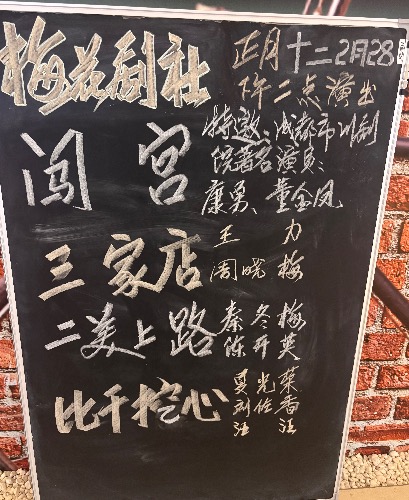 梅花剧社
正月十二 2月28
下午二点演出
闯宫
特邀:成都市川剧
院著名演员:
康勇、童金凤
三家店
王力
周晓梅
二美上路
秦冬梅
陈开英
比干挖心
夏光菜